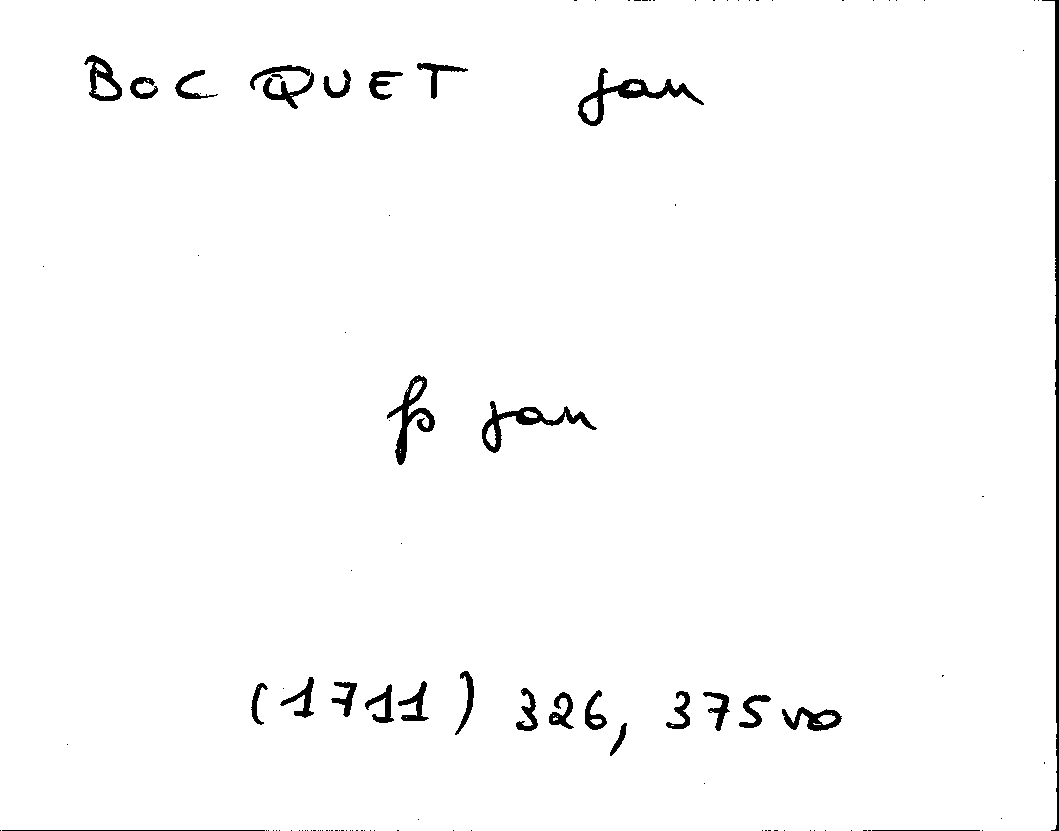 BOCQUET Jan
fs Jan
(1711) 326, 375 vo